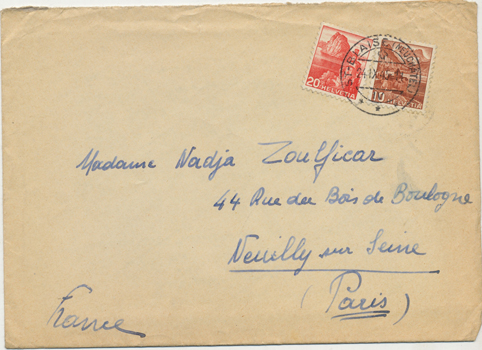 20 HELVETIA
HELVETIA
24.IX
Madame Nadja Zoulficar
44 Rue du Bois de Boulogne
Neuilly sur Seine
(Paris)
France